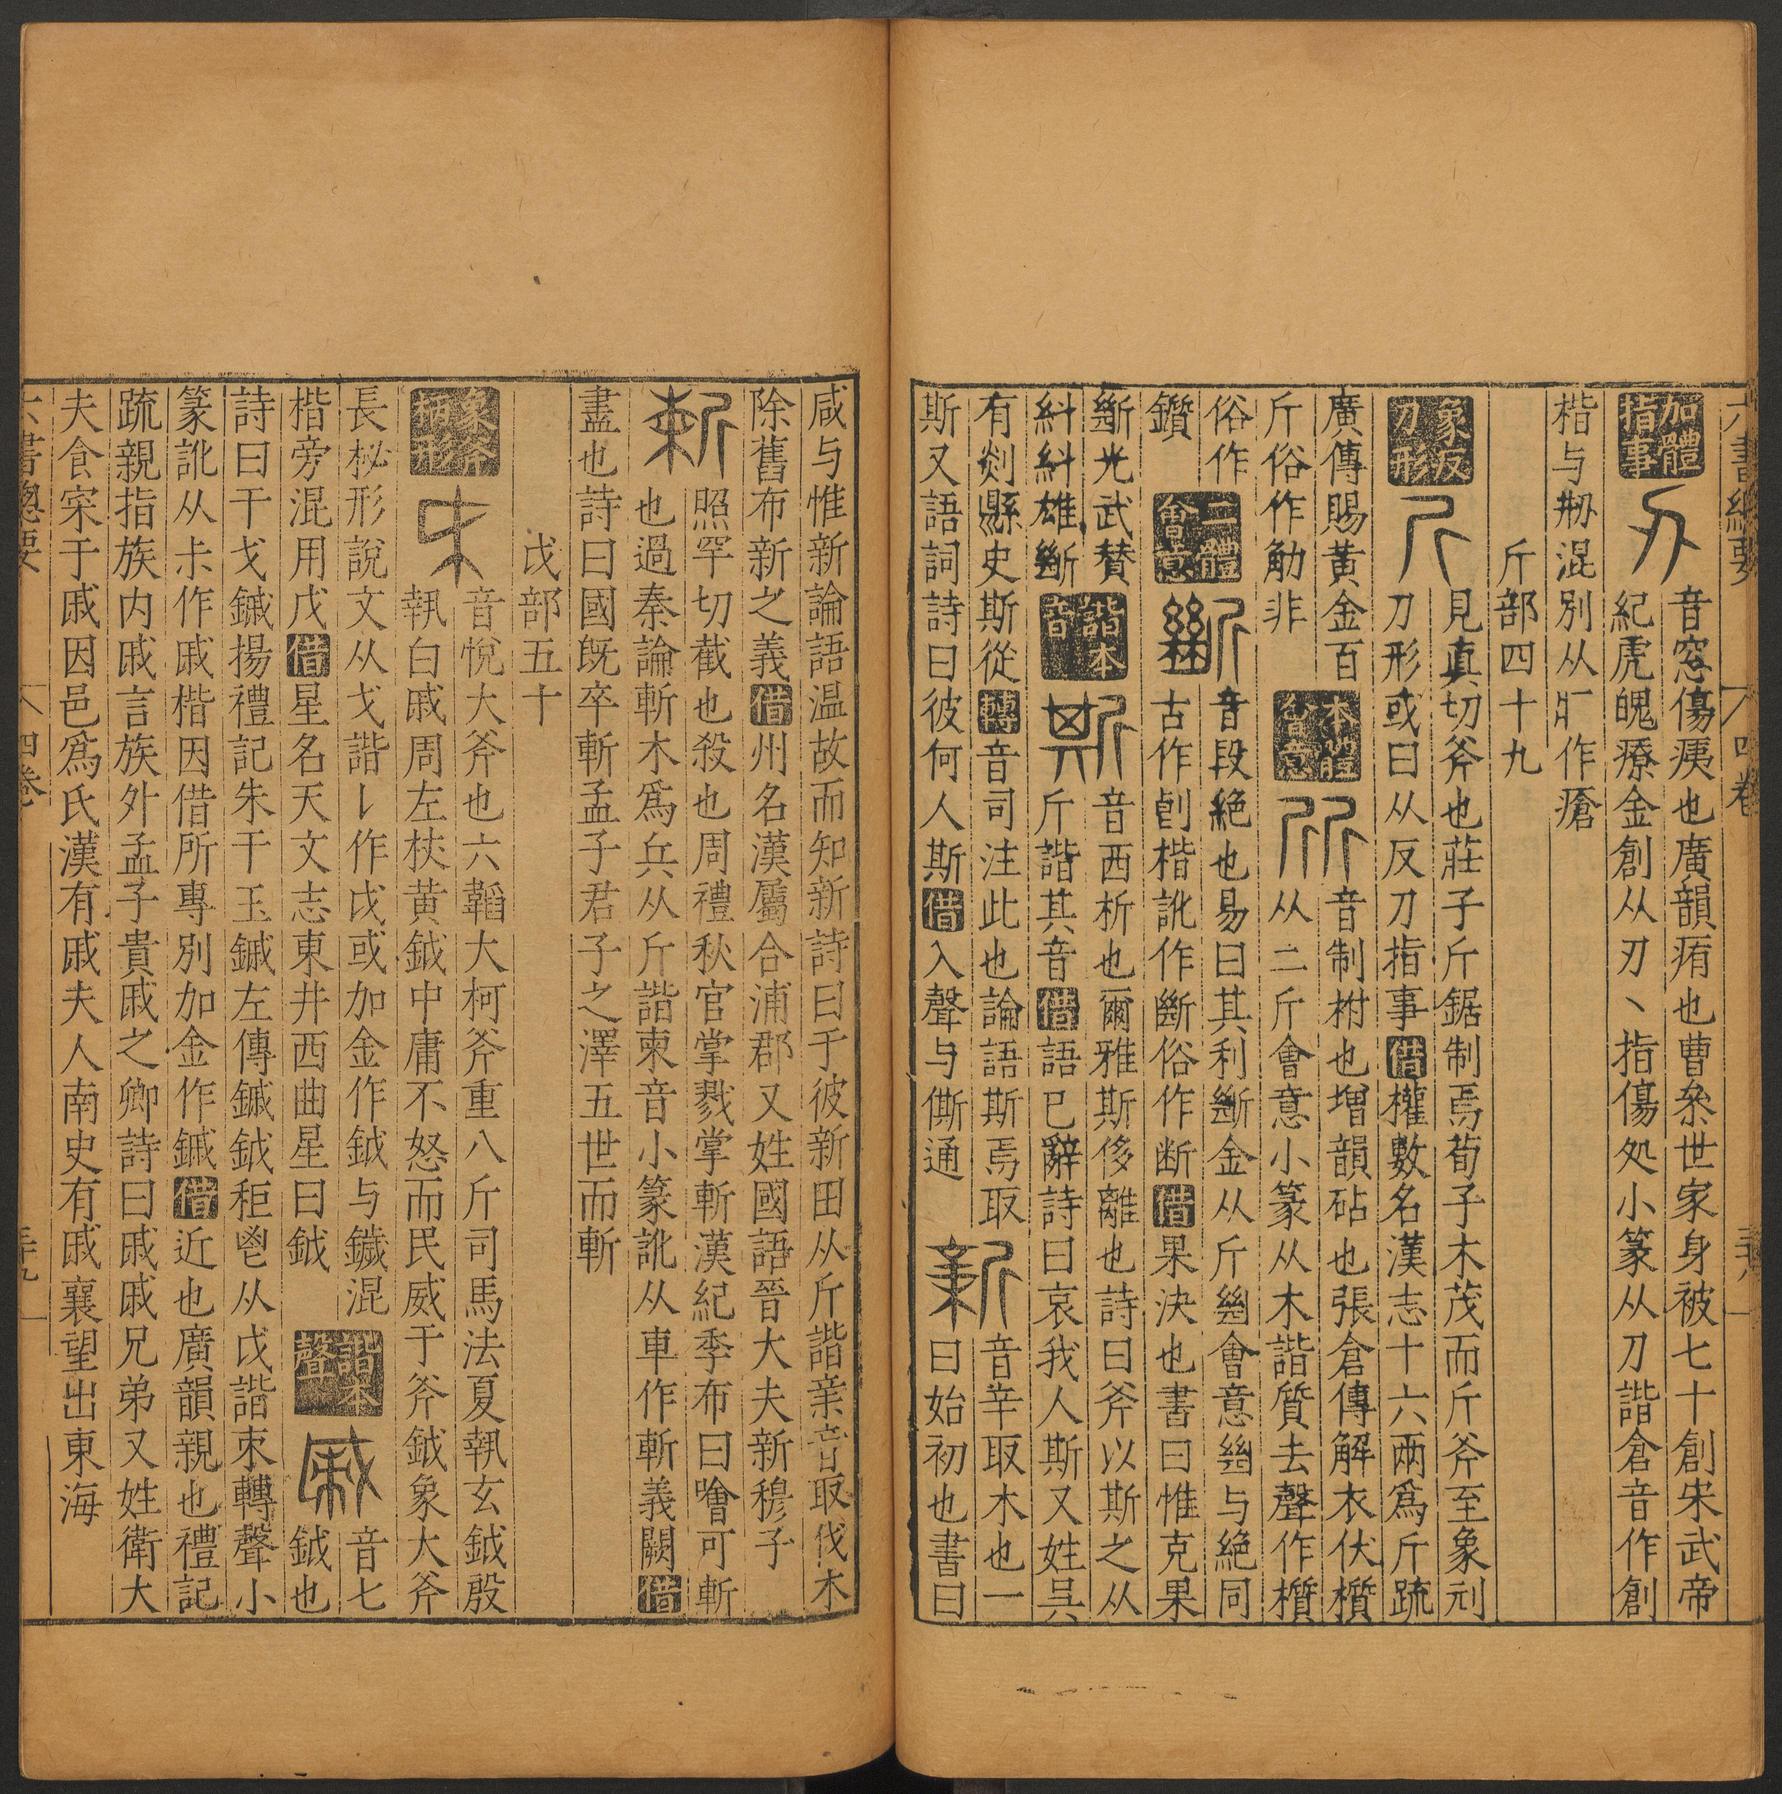 六書總要 四卷 三十八
加體指事 刅 音窓傷痍也廣韻痏也曹叅世家身被七十創宋武帝
紀虎魄療金創从刃丶指傷処小篆从刀諧倉音作創
楷与刱混別从疒作瘡
斤部四十九
象反刀形 斤 見真切斧也莊子斤鋸制焉荀子木茂而斤斧至象
刀形或曰从反刀指事借權數名漢志十六兩爲斤䟽
廣傳賜黃金百斤俗作觔非
本體會意 斦 音制柎也增韻砧也張倉傳解衣伏櫍
从二斤會意小篆从木諧質去聲作櫍
俗作鑕
二體會意 斷 音段絕也易曰其利斷金从斤𢇍會意𢇍与絕同
古作㫁楷訛作斷俗作断借果決也書曰惟克果
斷光武賛紏紏雄斷
諧本音 斯 音西析也爾雅斯侈離也詩曰斧以斯之从
斤諧其音借語巳辭詩曰哀我人斯又姓吳
有剡縣史斯從轉音司注此也論語斯焉取
斯又語詞詩曰彼何人斯借入聲与㒋通
新 音辛取木也一
曰始初也書曰
咸与惟新論語温故而知新詩曰于彼新田从斤諧亲音取伐木
除舊布新之義借州名漢屬合浦郡又姓國語晉大夫新穆子
斬 照罕切截也殺也周禮秋官掌戮掌斬漢紀季布曰噲可斬
也過秦論斬木爲兵从斤諧柬音小篆訛从車作斬義闕借
盡也詩曰國既卒斬孟子君子之澤五世而斬
戉部五十
象斧柄形 戉 音悅大斧也六韜大柯斧重八斤司馬法夏執玄鉞殷
執白戚周左杖黄鉞中庸不怒而民威于斧鉞象大斧
長柲形說文从戈諧𠄌作戉或加金作鉞与鐬混
楷旁混用戊借星名天文志東井西曲星曰鉞
諧本聲 戚 音七
鉞也
詩曰干戈鏚揚禮記朱干玉鏚左傳鏚鉞秬鬯从戉諧朿轉聲小
篆訛从尗作戚楷因借所專別加金作鏚借近也廣韻親也禮記
䟽親指族内戚言族外孟子貴戚之卿詩曰戚戚兄弟又姓衛大
夫食宋于戚因邑爲氏漢有戚夫人南史有戚襄望出東海
六書總要 四卷 三十九